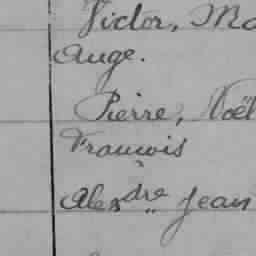 Victor, Ma
Auge.
Pierre, Noël
François
Alexdre Jean